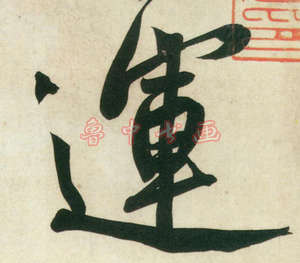 運
鲁中书画